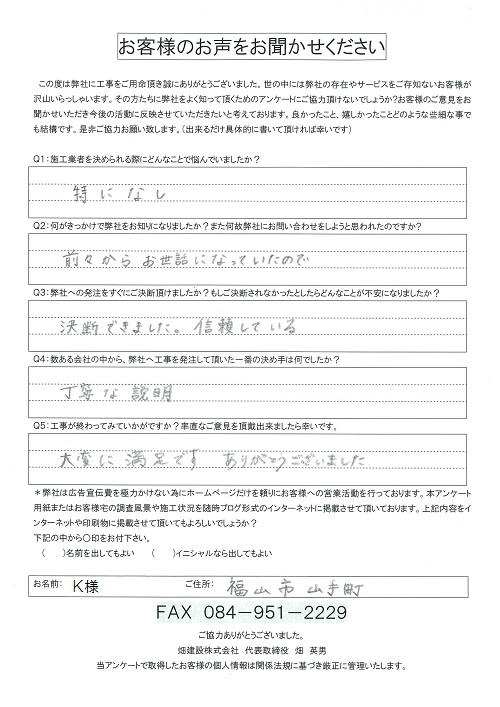 お客様のお声をお聞かせください
この度は弊社に工事をご用命頂き誠にありがとうございました。世の中には弊社の存在やサービスをご存知ないお客様が
沢山いらっしゃいます。その方たちに弊社をよく知って頂くためのアンケートにご協力頂けないでしょうか?お客様のご意見をお
聞かせいただき今後の活動に反映させていただきたいと考えております。良かったこと、嬉しかったことどのような些細な事で
も結構です。是非ご協力お願い致します。(出来るだけ具体的に書いて頂ければ幸いです)
Q1:施工業者を決められる際にどんなことで悩んでいましたか?
特になし
Q2:何がきっかけで弊社をお知りになりましたか?また何故弊社にお問い合わせをしようと思われたのですか?
前々からお世話になっていたので
Q3:弊社への発注をすぐにご決断頂けましたか?もしご決断されなかったとしたらどんなことが不安になりましたか?
決断できました。信頼している
Q4:数ある会社の中から、弊社へ工事を発注して頂いた一番の決め手は何でしたか?
丁寧な説明
Q5:工事が終わってみていかがですか?率直なご意見を頂戴出来ましたら幸いです。
大変に満足です ありがとうございました
*弊社は広告宣伝費を極力かけない為にホームページだけを頼りにお客様への営業活動を行っております。本アンケート
用紙またはお客様宅の調査風景や施工状況を随時ブログ形式のインターネットに掲載させて頂いております。上記内容をイ
ンターネットや印刷物に掲載させて頂いてもよろしいでしょうか?
下記の中から〇印をお付下さい。
( )名前を出してもよい ( )イニシャルなら出してもよい
お名前: K様 ご住所: 福山市山手町
FAX 084-951-2229
ご協力ありがとうございました。
畑建設株式会社 代表取締役 畑 英男
当アンケートで取得したお客様の個人情報は関係法規に基づき厳正に管理いたします。